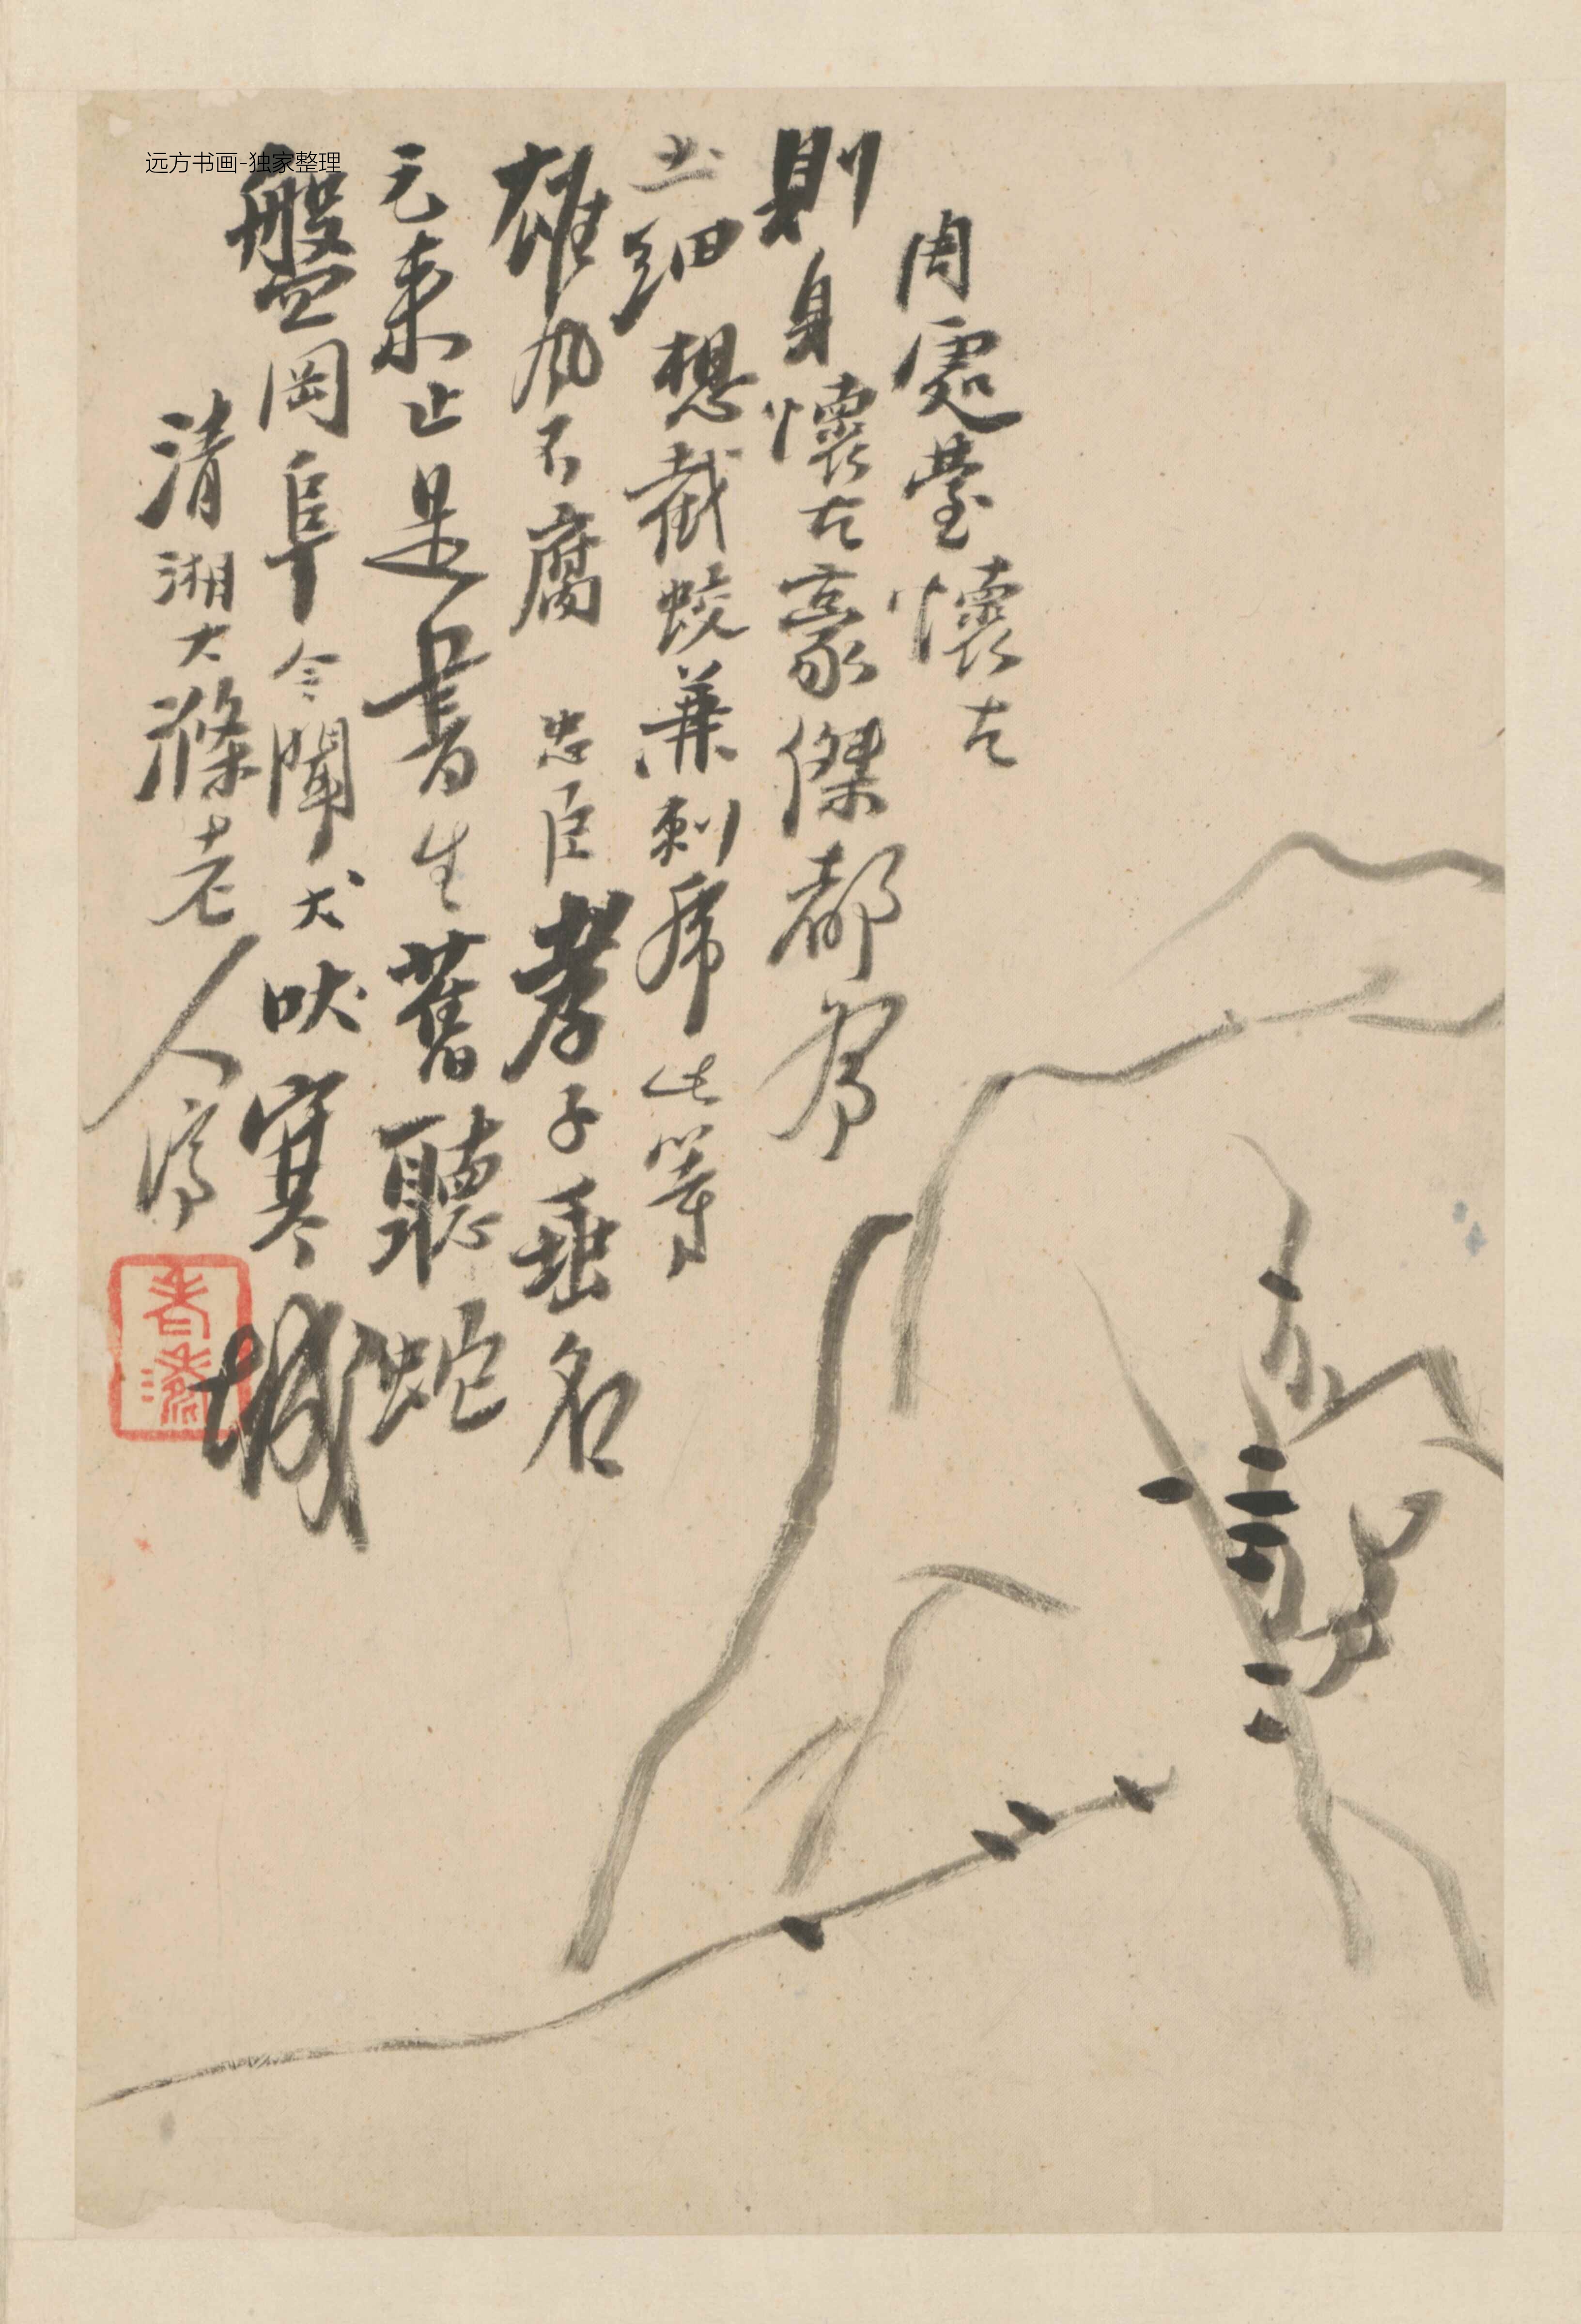 远方书画-独家整理
周處臺懷古
則身懷古豪傑都為
土細想截蛟兼刺虎此等
雄風不腐　忠臣孝子垂名
元來止是書生舊聽蛇
盤岡阜今聞犬吠寒城
清湘大滌老人濟